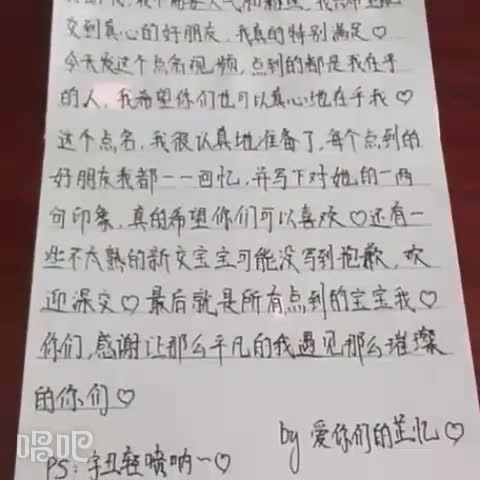 交到真心的好朋友,我真的特别满足♡
今天发这个点名视频,点到的都是我在乎
的人,我希望你们也可以真心地在乎我♡
这个点名,我很认真地准备了,每个点到的
好朋友我都一一回忆,并写下对她的一两
句印象,真的希望你们可以喜欢♡还有一
些不太熟的新交宝宝可能没写到抱歉,欢
迎深交♡最后就是所有点到的宝宝我♡
你们,感谢让那么平凡的我遇见那么璀璨
的你们♡
by 爱你们的芷忆♡
PS:字丑轻喷呐~♡
唱吧